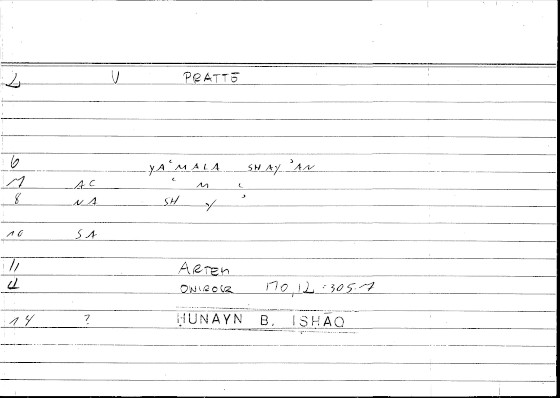 2 V PRATTĒ
6 YAʿMALA SHAYʾAN
7 AC ʿ M L
8 NA SH Y ʾ
10 SA
11 ARTEM
4 ONIROCR 170,12-305.1
14 ? ḤUNAYN B. ISHĀQ